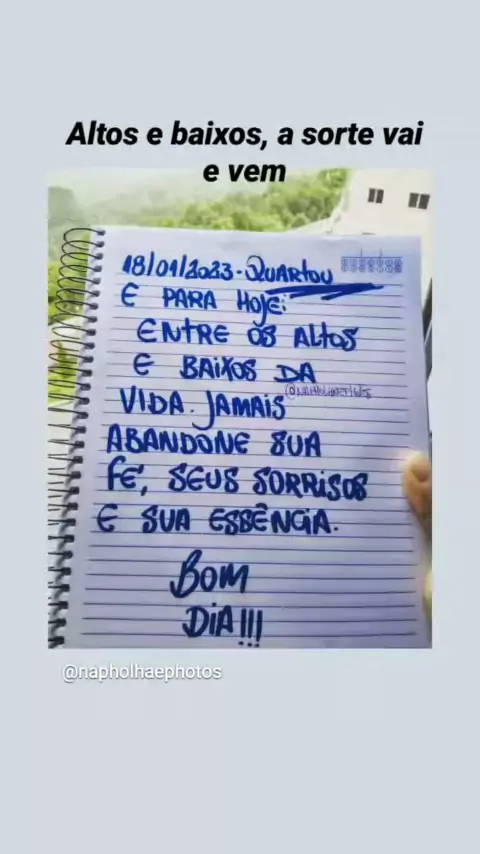 Altos e baixos, a sorte vai
e vem
18/01/2023-QUARTOU
E PARA HOJE:
ENTRE OS ALTOS
E BAIXOS DA
VIDA. JAMAIS
ABANDONE SUA
FÉ, SEUS SORRISOS
E SUA ESSÊNCIA.
BOM
DIA!!!
@napholhaephotos